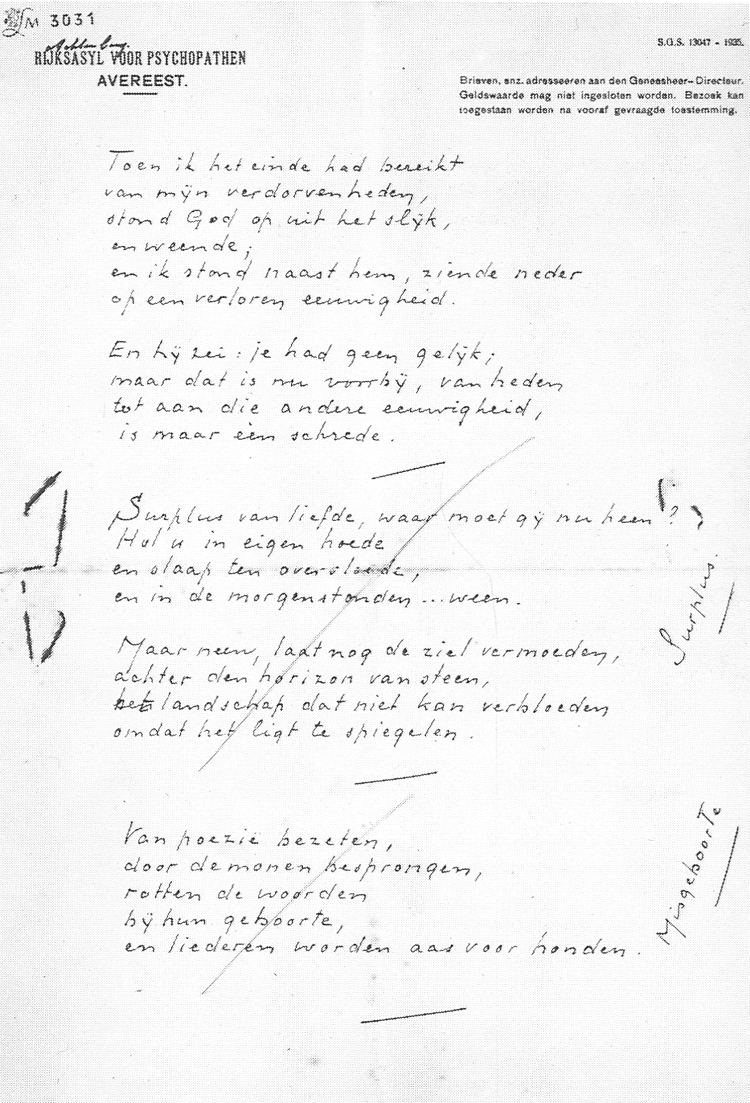 LM 3031
Achterberg.
RIJKSASYL VOOR PSYCHOPATHEN
AVEREEST.
S.G.S. 13047 - 1935.
Brieven, enz. adresseeren aan den Geneesheer-Directeur.
Geldswaarde mag niet ingesloten worden. Bezoek kan
toegestaan worden na vooraf gevraagde toestemming.
Toen ik het einde had bereikt
van mijn verdorvenheden,
stond God op uit het slijk,
en weende;
en ik stond naast hem, ziende neder
op een verloren eeuwigheid.
En hij zei: je had geen gelijk;
maar dat is nu voorbij, van heden
tot aan die andere eeuwigheid,
is maar één schrede.
Surplus van liefde, waar moet gij nu heen?
Hul u in eigen hoede
en slaap ten overvloede,
en in de morgenstonden ... ween.
Surplus.
Maar neen, laat nog de ziel vermoeden,
achter den horizon van steen,
het landschap dat niet kan verbloeden
omdat het ligt te spiegelen.
Van poezie bezeten,
door demonen besprongen,
rotten de woorden
bij hun geboorte,
en liederen worden aas voor honden.
Misgeboorte